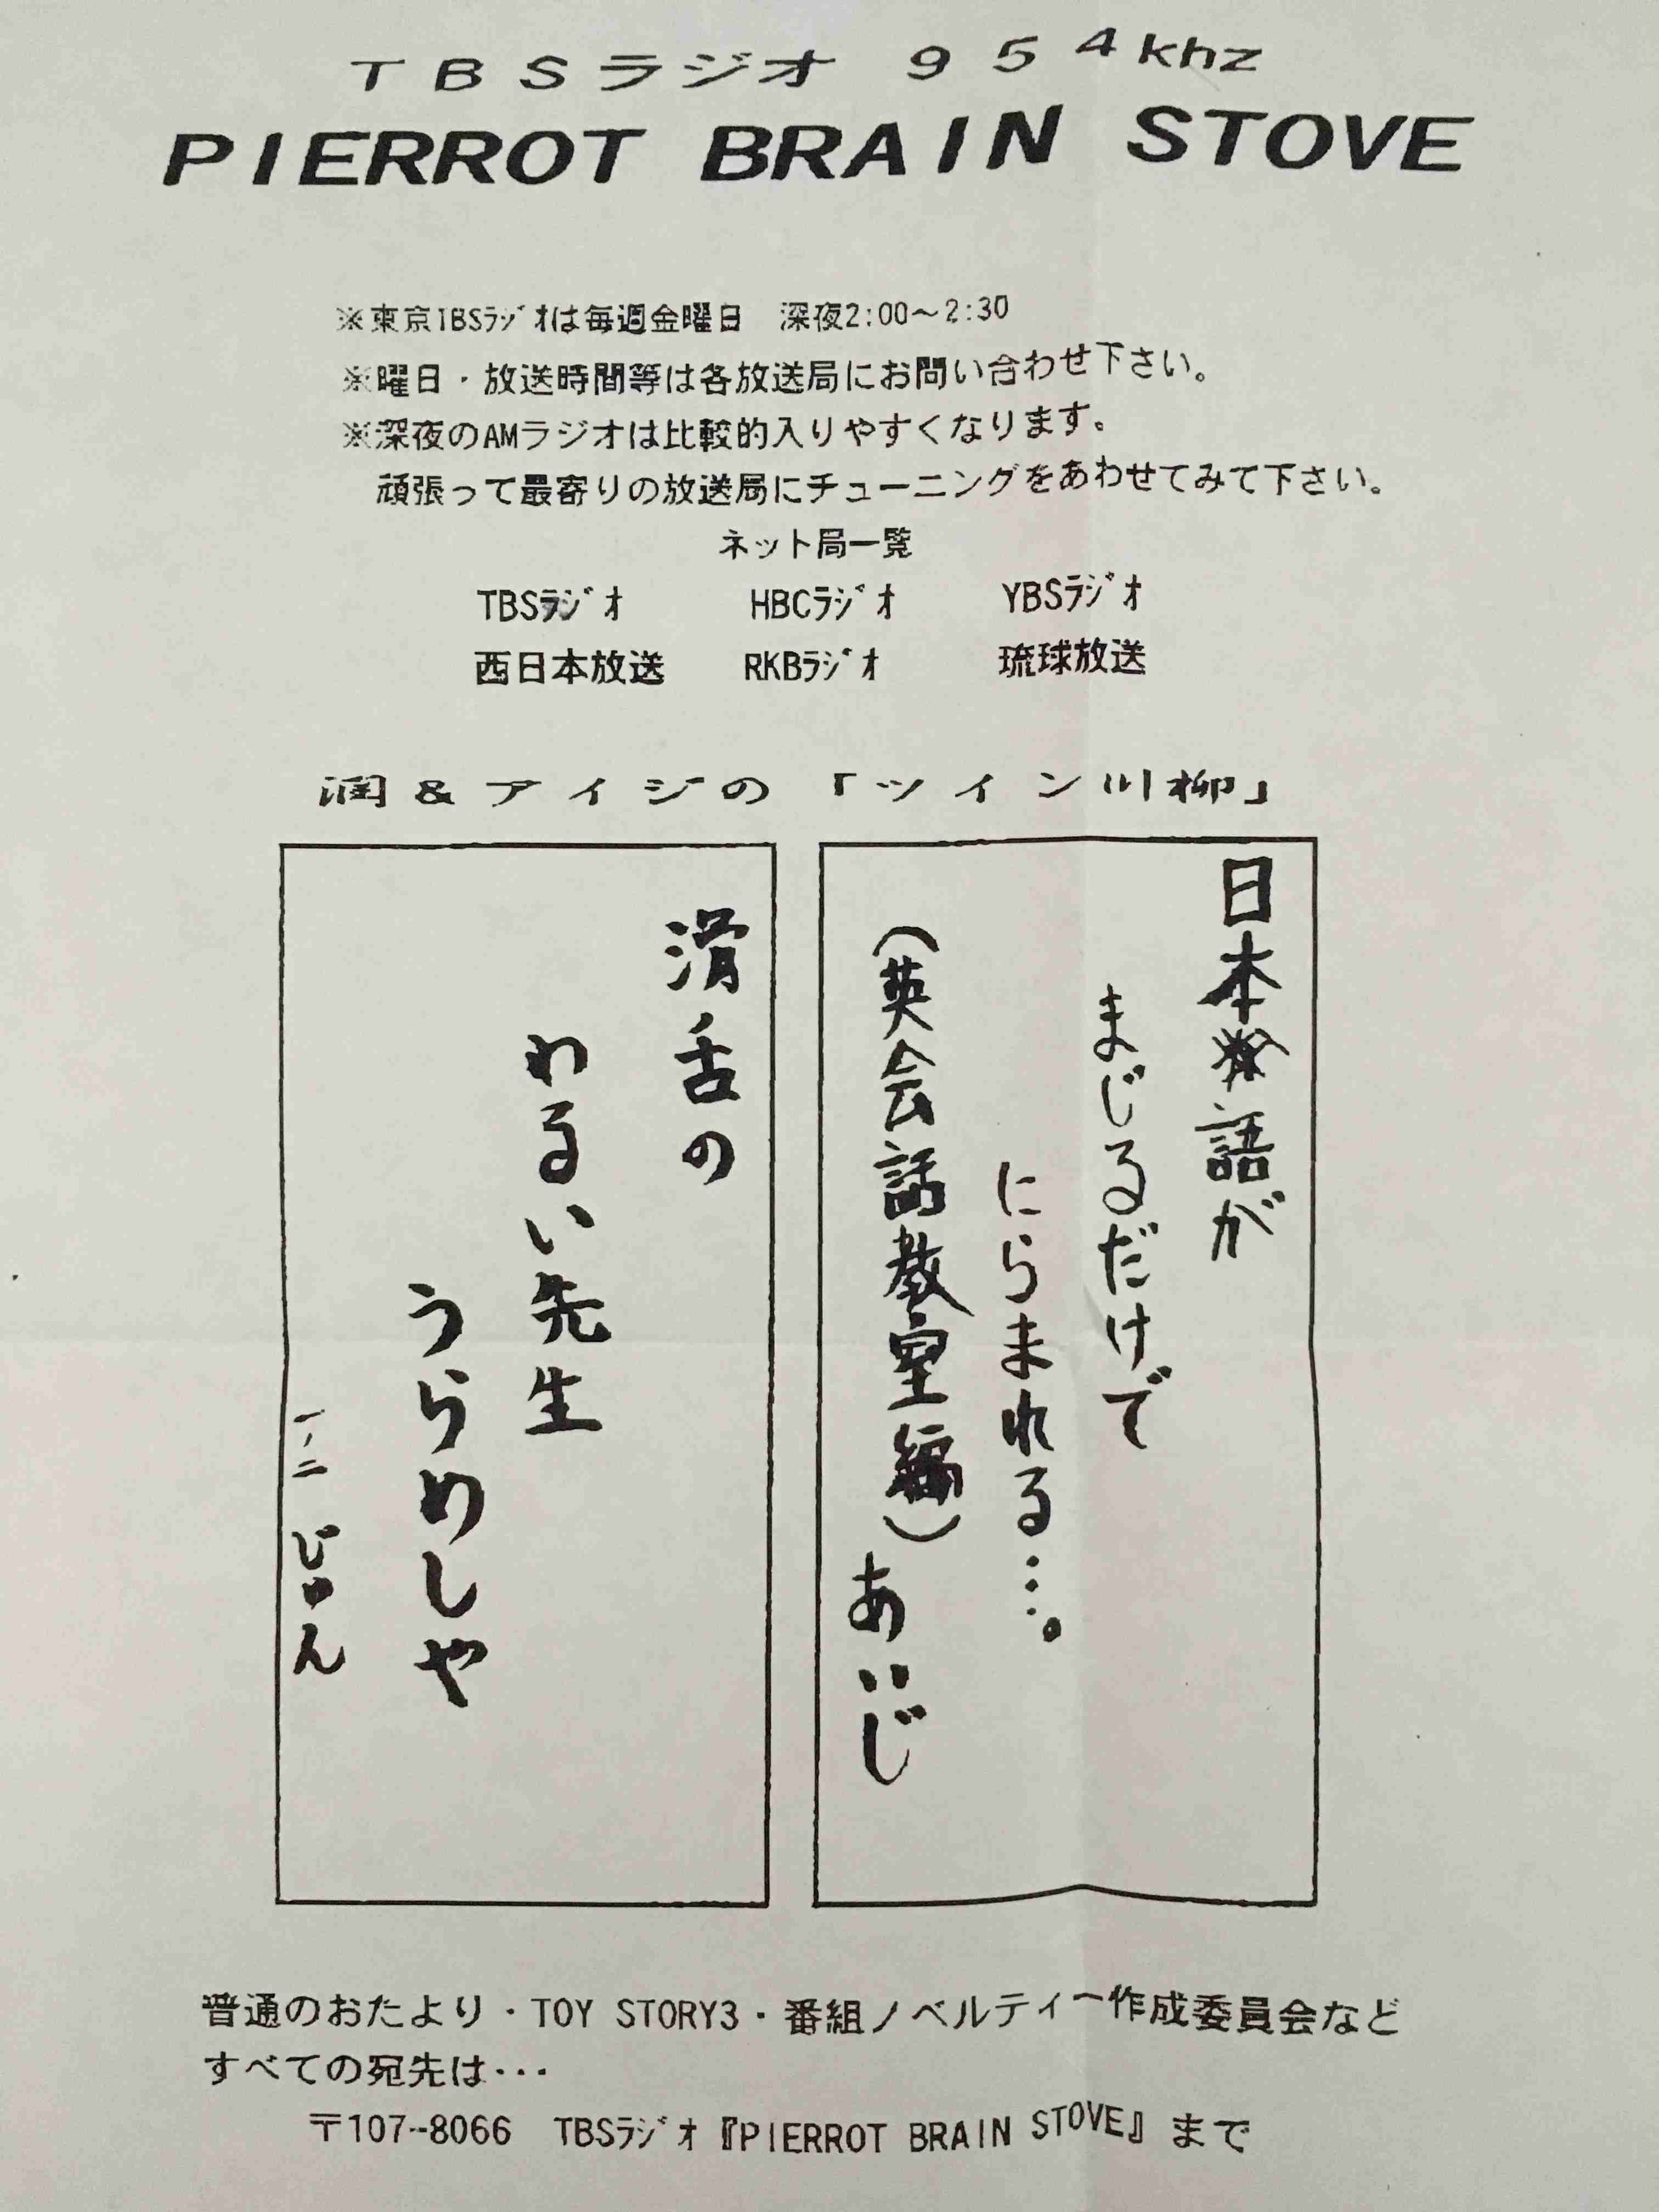 TBSラジオ 954khz
PIERROT BRAIN STOVE
※東京TBSﾗｼﾞｵは毎週金曜日　深夜2:00〜2:30
※曜日・放送時間等は各放送局にお問い合わせ下さい。
※深夜のAMラジオは比較的入りやすくなります。
頑張って最寄りの放送局にチューニングをあわせてみて下さい。
ネット局一覧
TBSﾗｼﾞｵ　HBCﾗｼﾞｵ　YBSﾗｼﾞｵ
西日本放送　RKBﾗｼﾞｵ　琉球放送
潤＆アイジの「ツイン川柳」
日本語が
まじるだけで
にらまれる…。
(英会話教室編) あいじ
滑舌の
わるい先生
うらめしや
じゅん
普通のおたより・TOY STORY3・番組ノベルティー作成委員会など
すべての宛先は・・・
〒107-8066　TBSﾗｼﾞｵ『PIERROT BRAIN STOVE』まで